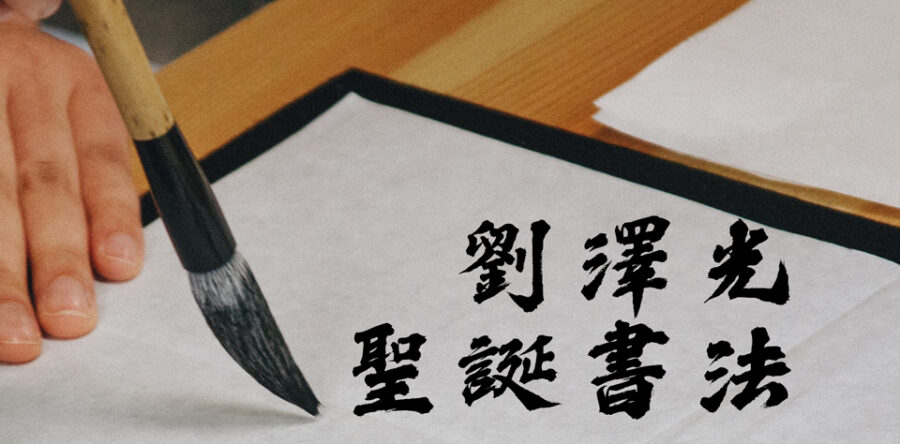 劉澤光
聖誕書法